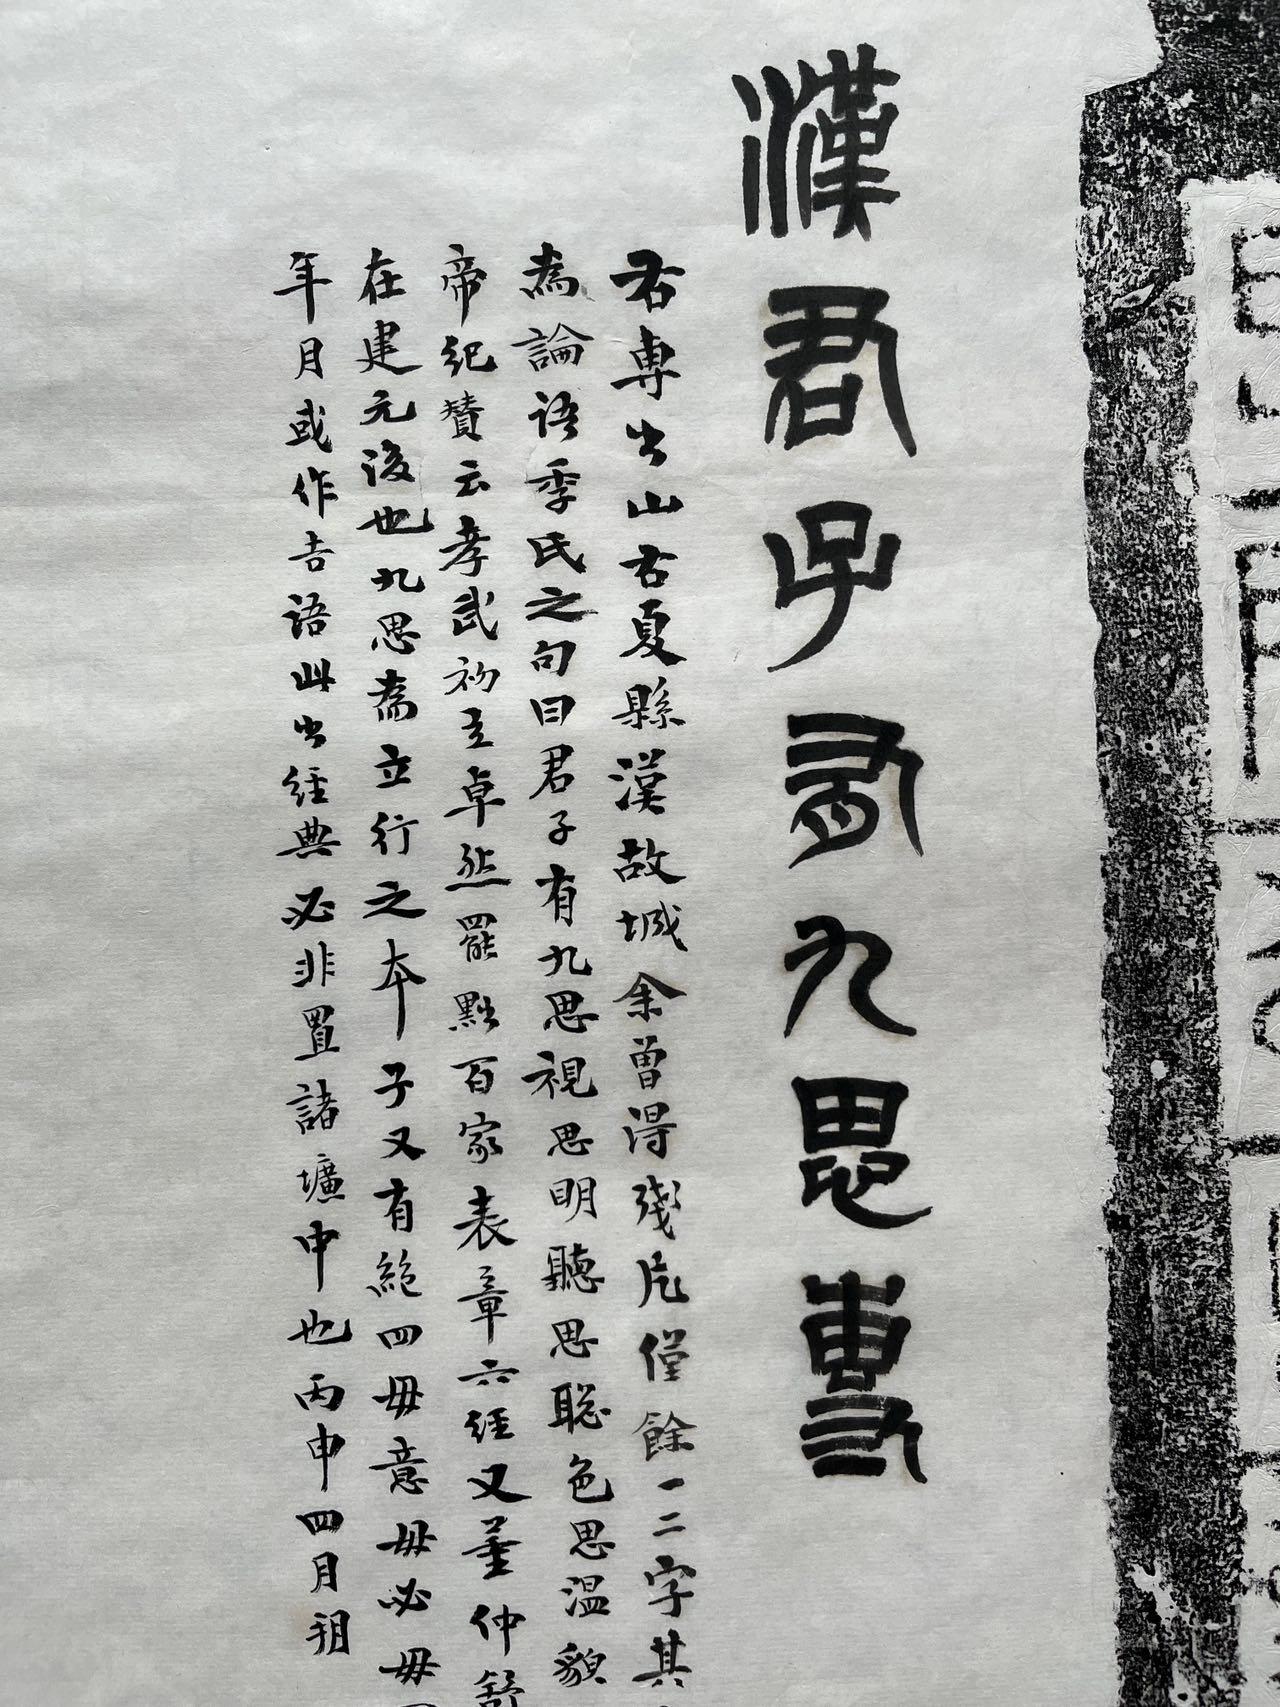 漢君子有九思專
右專出山右夏縣漢故城余曾得殘片僅餘一二字其
為論語季氏之句曰君子有九思視思明聽思聰色思温貌
帝紀贊云孝武初立卓然罷黜百家表章六經又董仲舒
在建元後也九思為立行之本子又有絶四毋意毋必毋
年月或作吉語此出經典必非置諸壙中也丙申四月